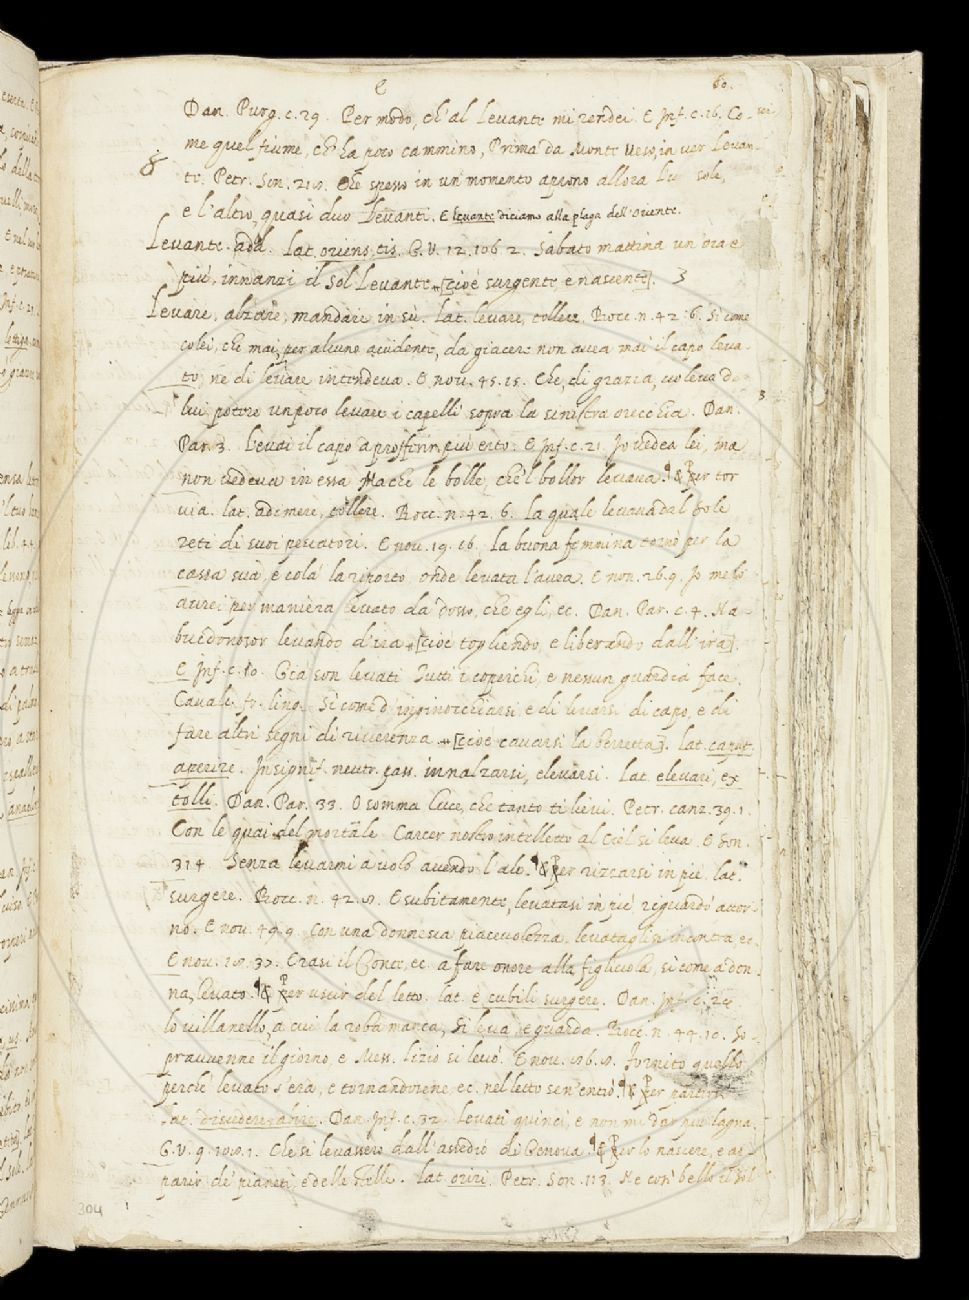 60.
Dan. Purg. c. 29. Per modo, ch'al Levante mi rendei. E Inf. c. 16. Co-
me quel fiume, c'ha proo cammino, Prima da Monte Veso, in ver levan-
te. Petr. Son. Che spesso in un momento aprono allora sole,
e l'altro, quasi duo Levanti. E levante diciamo alla plaga dell'oriente.
Levante. add. Lat. oriens, tis. G. V. 12. 106. 2. Sabato mattina un'ora e
più, innanzi il Sol Levante [cioè surgente, e nascente].
Levare, alzare, mandare in sù. Lat. levare, tollere. Bocc. n. 42. 6. Si come
colei, che mai, per alcuno accidente, da giacere non avea mai il capo leva-
to, ne di levare intendeva. E nov. 45. 15. Che, di grazia, voleva da
lui potere un poco levare i capelli sopra la sinistra orecchia. Dan.
Par. 3. Levai il capo a profferir più erto. E Inf. c. 21. Io vedea lei, ma
non vedeva in essa Ma che le bolle, che'l bollor levava. Per tor
via. lat. adimere, tollere. Bocc. n. 42. 6. la quale levava dal sole
reti di suoi pescatori. E nov. 19. 16. La buona femmina tornò per la
cassa sua, e colà la riportò, onde levata l'avea. E nov. 26. 9. Io me lo
aurei per maniera levato da dosso, che egli, ec. Dan. Par. c. 4. Na-
bucdonosor levando d'ira [cioè togliendo, e liberando dall'ira].
E Inf. c. 10. Gia son levati Tutti i coperchi, e nessun guardia face.
Cavalc. fr. ling. Sì come d'inginocchiarsi, e di levarsi di capo, e di
fare altri segni di riverenza [cioè cavarsi la berretta]. lat. caput
aperire. In signif. neutr. pass. innalzarsi, elevarsi. Lat. elevari, ex
tolli. Dan. Par. 33. O somma luce, che tanto ti lievi. Petr. canz. 39. 1.
Con le quai del mortale Carcer nostro intelletto al Ciel si leva. E Son.
314. Senza levarmi a volo avendo l'ale. Per rizzarsi in pie. lat.
surgere. Bocc. n. 42. E subitamente, levatasi in piè riguardò attor-
no. E nov. 49. 9. Con una donnesca piacevolezza. levataglisi incontra, ec.
E nov. 37. Erasi il Conte, ec. a fare onore alla figliuola, sì come a don
na, levato. Per uscir del letto. lat. e cubili surgere. Dan. Inf. c. 24.
lo villanello, a cui la roba manca, Si leva, e guarda. Bocc. n. 44. 10. So-
pravvenne il giorno, e Mess. Lizio si levò. E nov. fornito quello
perchè levato s'era, e tornandosene, ec. nel letto sen'entrò. Per partirsi
lat. discedere, Dan. Inf. c. 32. Levati quinci, e non mi dar più lagna.
G. V. 9. Che si levassero dall'assedio di Genova. Per lo nascere, e ap
parir de' pianeti, e delle stelle. Lat. oriri. Petr. Son. 113. Ne così bello il sol
304